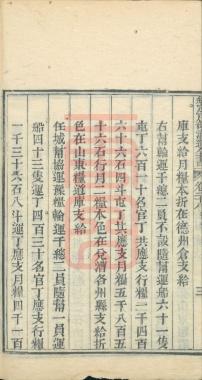 庫支給月糧本折在德州倉支給
右幫輪運千總二員不設隨幫運船六十一隻
屯丁六百一十名官丁共應支行糧二千四百
六十六石四斗屯丁共應支月糧五千八百五
十六石行月二糧本色在兌漕各州縣支給折
色在山東糧道庫支給
任城幫協運薊糧輪運千總二員隨幫一員運
船四十三隻運丁四百三十名官丁應支行糧
一千三十六石八斗運丁應支月糧四千一百